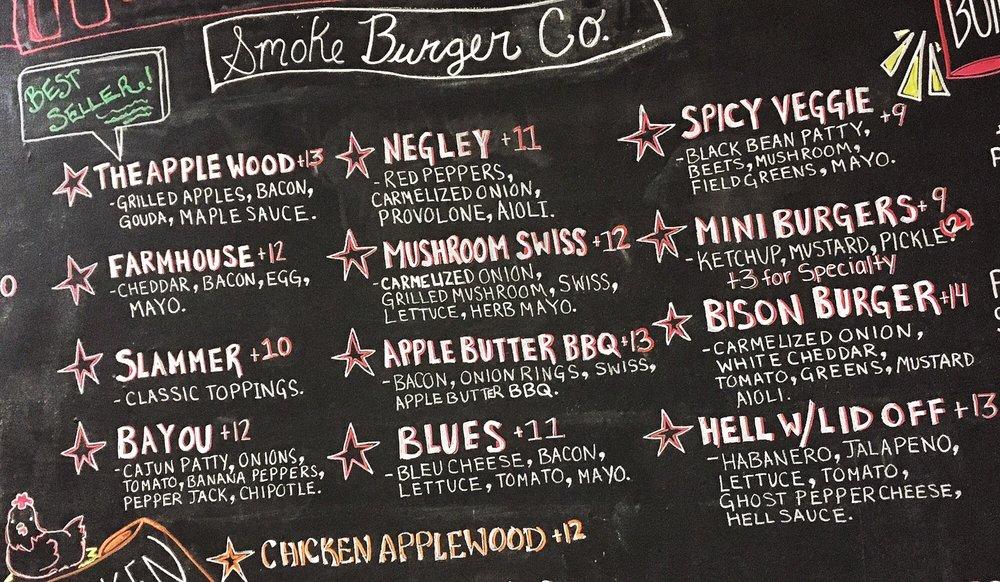 Smoke Burger Co.
BEST
SELLER!
THE APPLE WOOD +13
-GRILLED APPLES, BACON,
GOUDA, MAPLE SAUCE.
FARMHOUSE +12
-CHEDDAR, BACON, EGG,
MAYO.
SLAMMER +10
-CLASSIC TOPPINGS.
BAYOU +12
-CAJUN PATTY, ONIONS,
TOMATO, BANANA PEPPERS,
PEPPER JACK, CHIPOTLE.
NEGLEY +11
-RED PEPPERS,
CARMELIZED ONION,
PROVOLONE, AIOLI.
MUSHROOM SWISS +12
-CARMELIZED ONION,
GRILLED MUSHROOM, SWISS,
LETTUCE, HERB MAYO.
APPLE BUTTER BBQ +13
-BACON, ONION RINGS, SWISS,
APPLE BUTTER BBQ.
BLUES +11
-BLEU CHEESE, BACON,
LETTUCE, TOMATO, MAYO.
SPICY VEGGIE +9
-BLACK BEAN PATTY,
BEETS, MUSHROOM,
FIELD GREENS, MAYO.
MINI BURGERS +9
(2)
-KETCHUP, MUSTARD, PICKLE.
+3 for Specialty
BISON BURGER +14
-CARMELIZED ONION,
WHITE CHEDDAR,
TOMATO, GREENS, MUSTARD
AIOLI.
HELL W/LID OFF +13
-HABANERO, JALAPENO,
LETTUCE, TOMATO,
GHOST PEPPER CHEESE,
HELL SAUCE.
CHICKEN APPLEWOOD +12